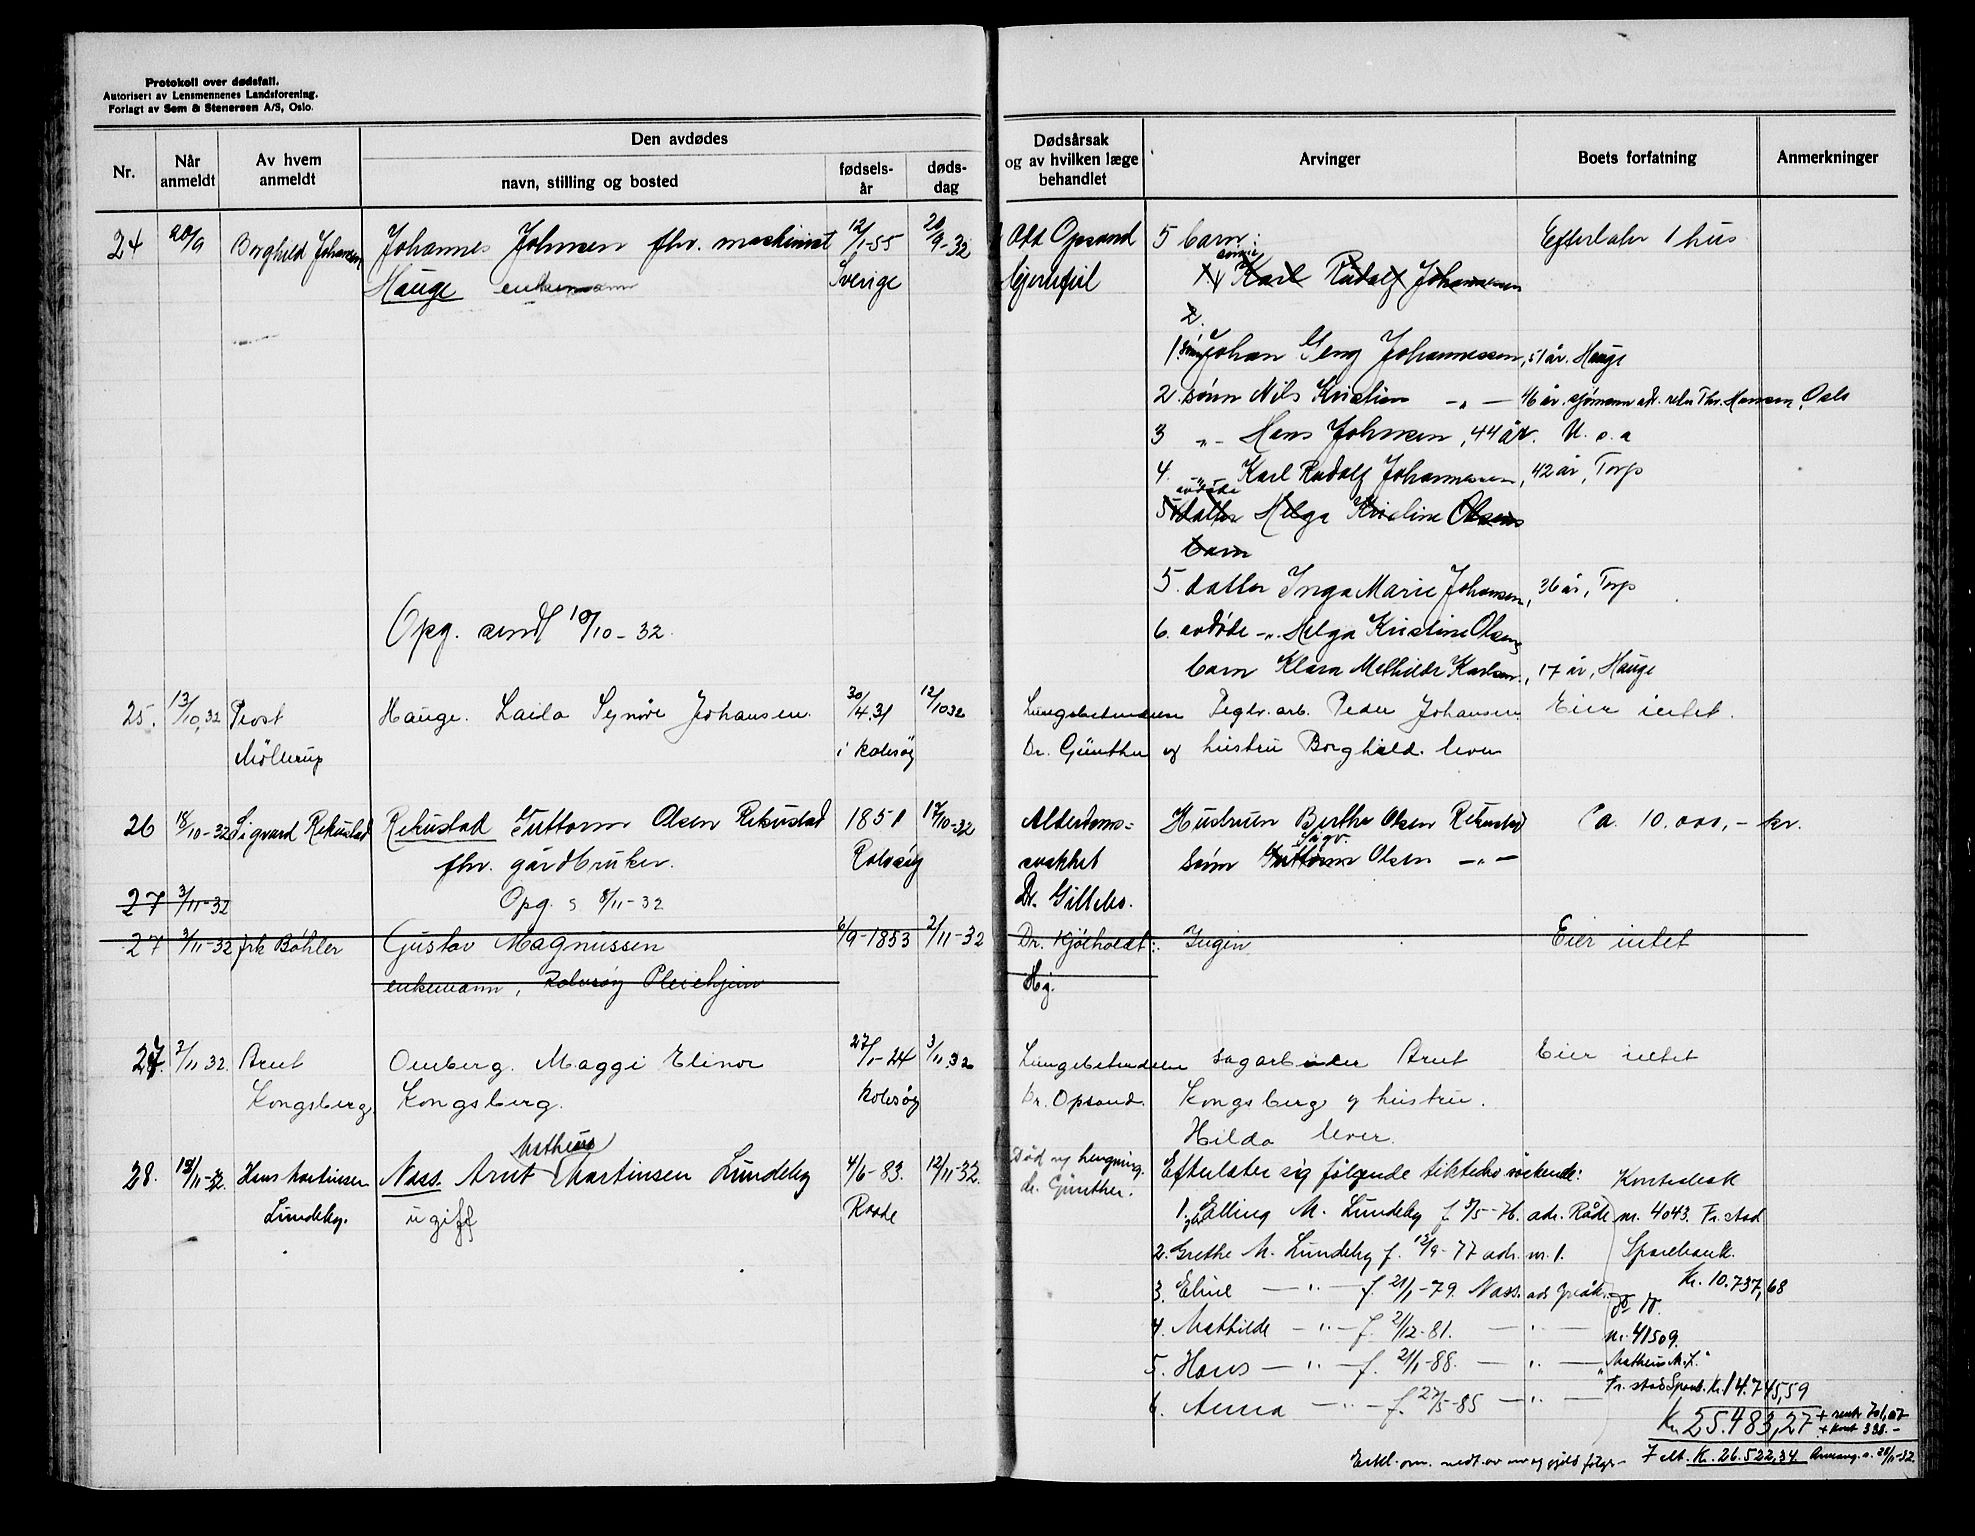 Protokoll over dødsfall.
Autorisert av Lensmennenes Landsforening.
Forlagt av Sem & Stenersen A/S, Oslo.
Nr.
Når anmeldt
Av hvem anmeldt
Den avdødes
navn, stilling og bosted
fødsels-år
døds-dag
Dødsårsak og av hvilken læge behandlet
Arvinger
Boets forfatning
Anmerkninger
24 20/9 Borghild Johansen Johannes Johnsen fhv. maskinist 12/1-55 20/9-32 Opsand 5 barn: Efterlater 1 hus
Hauge enkemann Sverige hjertefeil
sønn
1. Karl Rudolf Johannessen
2.
1. sønn Johan Georg Johannessen, 51 år. Hauge
2. sønn Nils Kristian -„- 46 år. sjømann adr. Thv. Hansen, Oslo
3 „- Hans Johnsen, 44 år. U.s.a
4. „ Karl Rudolf Johannessen, 42 år, Torp
avdøde
5 datter Helga Kristine Olsens
barn
5. datter Inga Marie Johansen, 36 år, Torp
Opg. sendt 10/10-32.
6. avdøde -„- Helga Kristine Olsens
barn Klara Mathilde Karlsen, 17 år, Hauge
25. 13/10.32 Prost Hauge. Laila Synøve Johansen. 30/4.31 12/10 32 Lungebetendelse Teglv. arb. Peder Johansen Eier intet.
Møllerup i Rolvsøy Dr. Günther og hustru Borghild. lever
26 18/10-32 Sigvard Rekustad Rekustad Guttorm Olsen Rekustad 1851 17/10-32 Alderdoms- Hustruen Berthe Olsen Rekustad Ca. 10.000,- kr.
Sigv.
fhv. gårdbruker. Rolvsøy svakhet sønn Guttorm Olsen -„-
27 3/11-32 Opg. s 8/11-32 Dr. Gillebo.
27 3/11-32 frk Bøhler Gustav Magnussen 6/9-1853 2/11-32 Dr. Kjølholdt: Ingen Eier intet
enkemann, Rolvsøy Pleiehjem Hj.
27. 7/11 32. Arnt Omberg. Maggi Elinor 27/1-24 3/11.32 Lungebetendelse Sagarbeider Arnt Eier intet
Kongsberg. Kongsberg. Rolvsøy Dr. Opsand. Kongsberg og hustru.
Hilda lever.
Matheus
28. 15/11-32. Hans Martinsen Næss. Arnt Martinsen Lundeby 4/6-83. 12/11-32. Død ved hengning. Efterlater sig følgende søskende: Kontrabok
Lundeby. ugift Raade dr. Günther.
1. Elling M. Lundeby f. 8/5- adr. Råde nr. 4043. Fr.stad
2. Grethe M. Lundeby f. 12/9-77 adr. nr. 1. Sparebank.
Kr. 10.737,68
3. Eline -„- f. 21/1-79. Næss.
4. Mathilde -„- f. 2/12-81. -„- nr. 41509.
5. Hans -„- f. 21/1-88. -„- "Matheus M. L."
Fr.stad Spareb. Kr. 14.745,59
6. Anna -„- f. 27/5-85 -„-
Kr. 25.483,27 + rente 701,07
+ kont 338.-
Kr. 26.522,34.